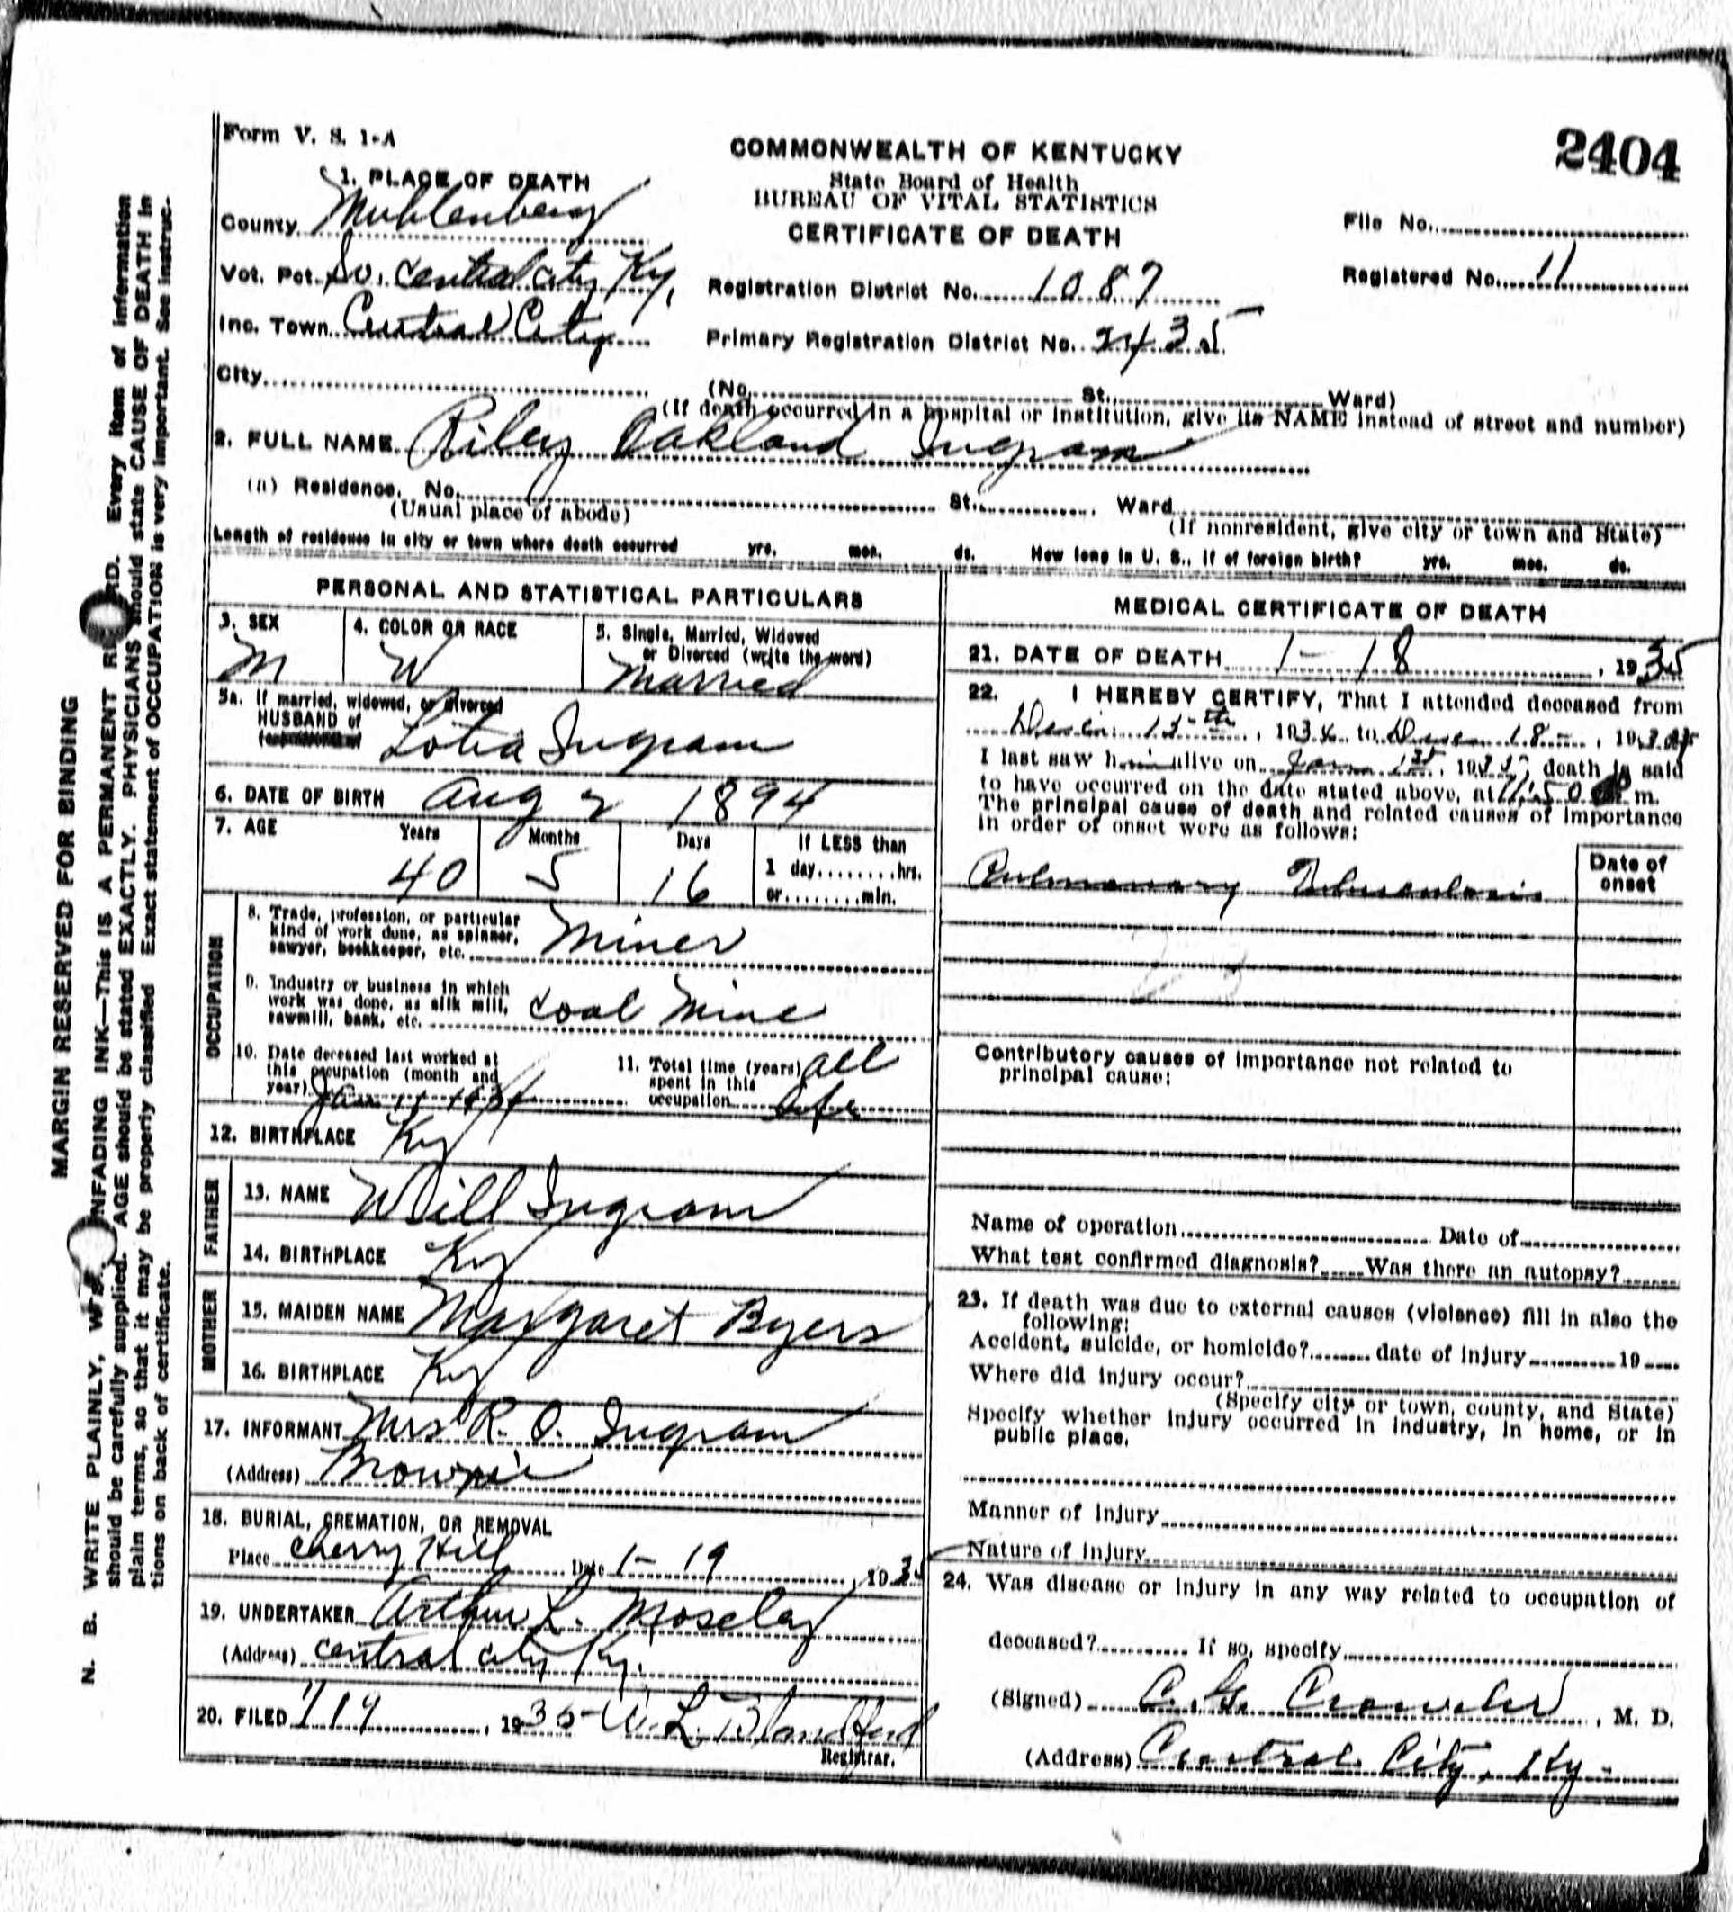 Form V. S. 1-A
2404
COMMONWEALTH OF KENTUCKY
State Board of Health
BUREAU OF VITAL STATISTICS
CERTIFICATE OF DEATH
1. PLACE OF DEATH
County Muhlenberg
Vot. Pct. So. Central City Ky,
Inc. Town Central City
City
Registration District No. 1087
Primary Registration District No. 2435
File No.
Registered No. 11
(No. St., Ward)
(If death occurred in a hospital or institution, give its NAME instead of street and number)
2. FULL NAME Riley Oakland Ingram
(a) Residence. No. St., Ward
(Usual place of abode) (If nonresident, give city or town and State)
Length of residence in city or town where death occurred yrs. mos. ds. How long in U. S., if of foreign birth? yrs. mos. ds.
PERSONAL AND STATISTICAL PARTICULARS
3. SEX M
4. COLOR OR RACE W
5. Single, Married, Widowed
or Divorced (write the word)
Married
5a. If married, widowed, or divorced
HUSBAND of
Lotia Ingram
6. DATE OF BIRTH Aug 2 1894
7. AGE Years Months Days If LESS than
40 5 16 1 day........hrs.
or........min.
OCCUPATION
8. Trade, profession, or particular
kind of work done, as spinner,
sawyer, bookkeeper, etc. Miner
9. Industry or business in which
work was done, as silk mill,
sawmill, bank, etc. Coal Mine
10. Date deceased last worked at
this occupation (month and
year) Jan 11 1934
11. Total time (years) all
spent in this
occupation life
12. BIRTHPLACE Ky
FATHER
13. NAME Will Ingram
14. BIRTHPLACE Ky
MOTHER
15. MAIDEN NAME Margaret Byers
16. BIRTHPLACE Ky
17. INFORMANT Mrs R. O. Ingram
(Address) Brownie
18. BURIAL, CREMATION, OR REMOVAL
Place Cherry Hill Date 1-19, 1935
19. UNDERTAKER Arthur L. Moseley
(Address) Central City Ky.
20. FILED 1/19, 1935 W. L. Blandford
Registrar.
MEDICAL CERTIFICATE OF DEATH
21. DATE OF DEATH 1-18, 1935
22. I HEREBY CERTIFY, That I attended deceased from
15th, 1934 to 18, 19
I last saw him alive on Jan 1st, 1935, death is said
to have occurred on the date stated above, at 11:50 m.
The principal cause of death and related causes of importance
in order of onset were as follows:
Date of
onset
Pulmonary Tuberculosis
Contributory causes of importance not related to
principal cause:
Name of operation Date of
What test confirmed diagnosis? Was there an autopsy?
23. If death was due to external causes (violence) fill in also the
following:
Accident, suicide, or homicide? date of injury 19
Where did injury occur?
(Specify city or town, county, and State)
Specify whether injury occurred in industry, in home, or in
public place.
Manner of injury
Nature of injury
24. Was disease or injury in any way related to occupation of
deceased? If so, specify
(Signed) , M. D.
(Address) Central City, Ky.
MARGIN RESERVED FOR BINDING
N. B. WRITE PLAINLY, WITH UNFADING INK—This IS A PERMANENT RECORD. Every item of information
should be carefully supplied. AGE should be stated EXACTLY. PHYSICIANS should state CAUSE OF DEATH in
plain terms, so that it may be properly classified. Exact statement of OCCUPATION is very important. See instruc-
tions on back of certificate.